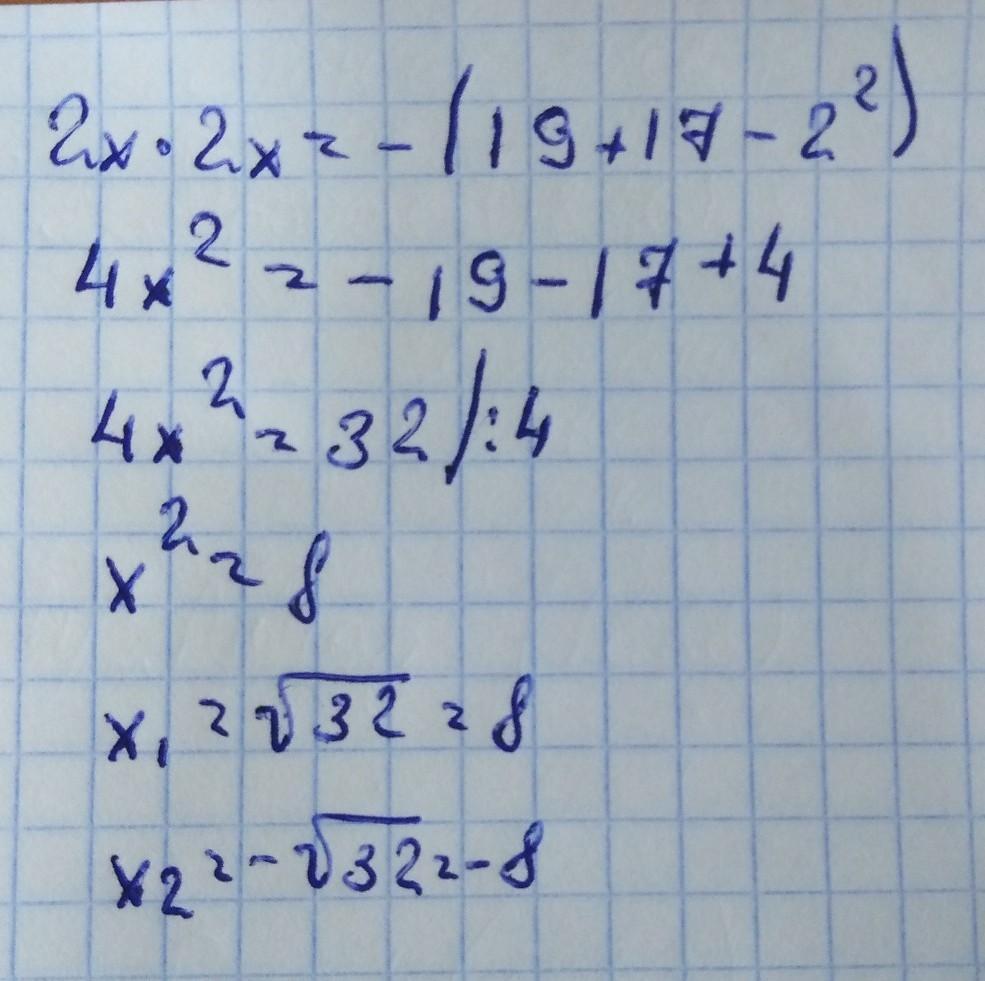 2x·2x=-(19+17-2²)
4x²=-19-17+4
4x²=32/:4
x²=8
x₁=√32=8
x₂=-√32=-8